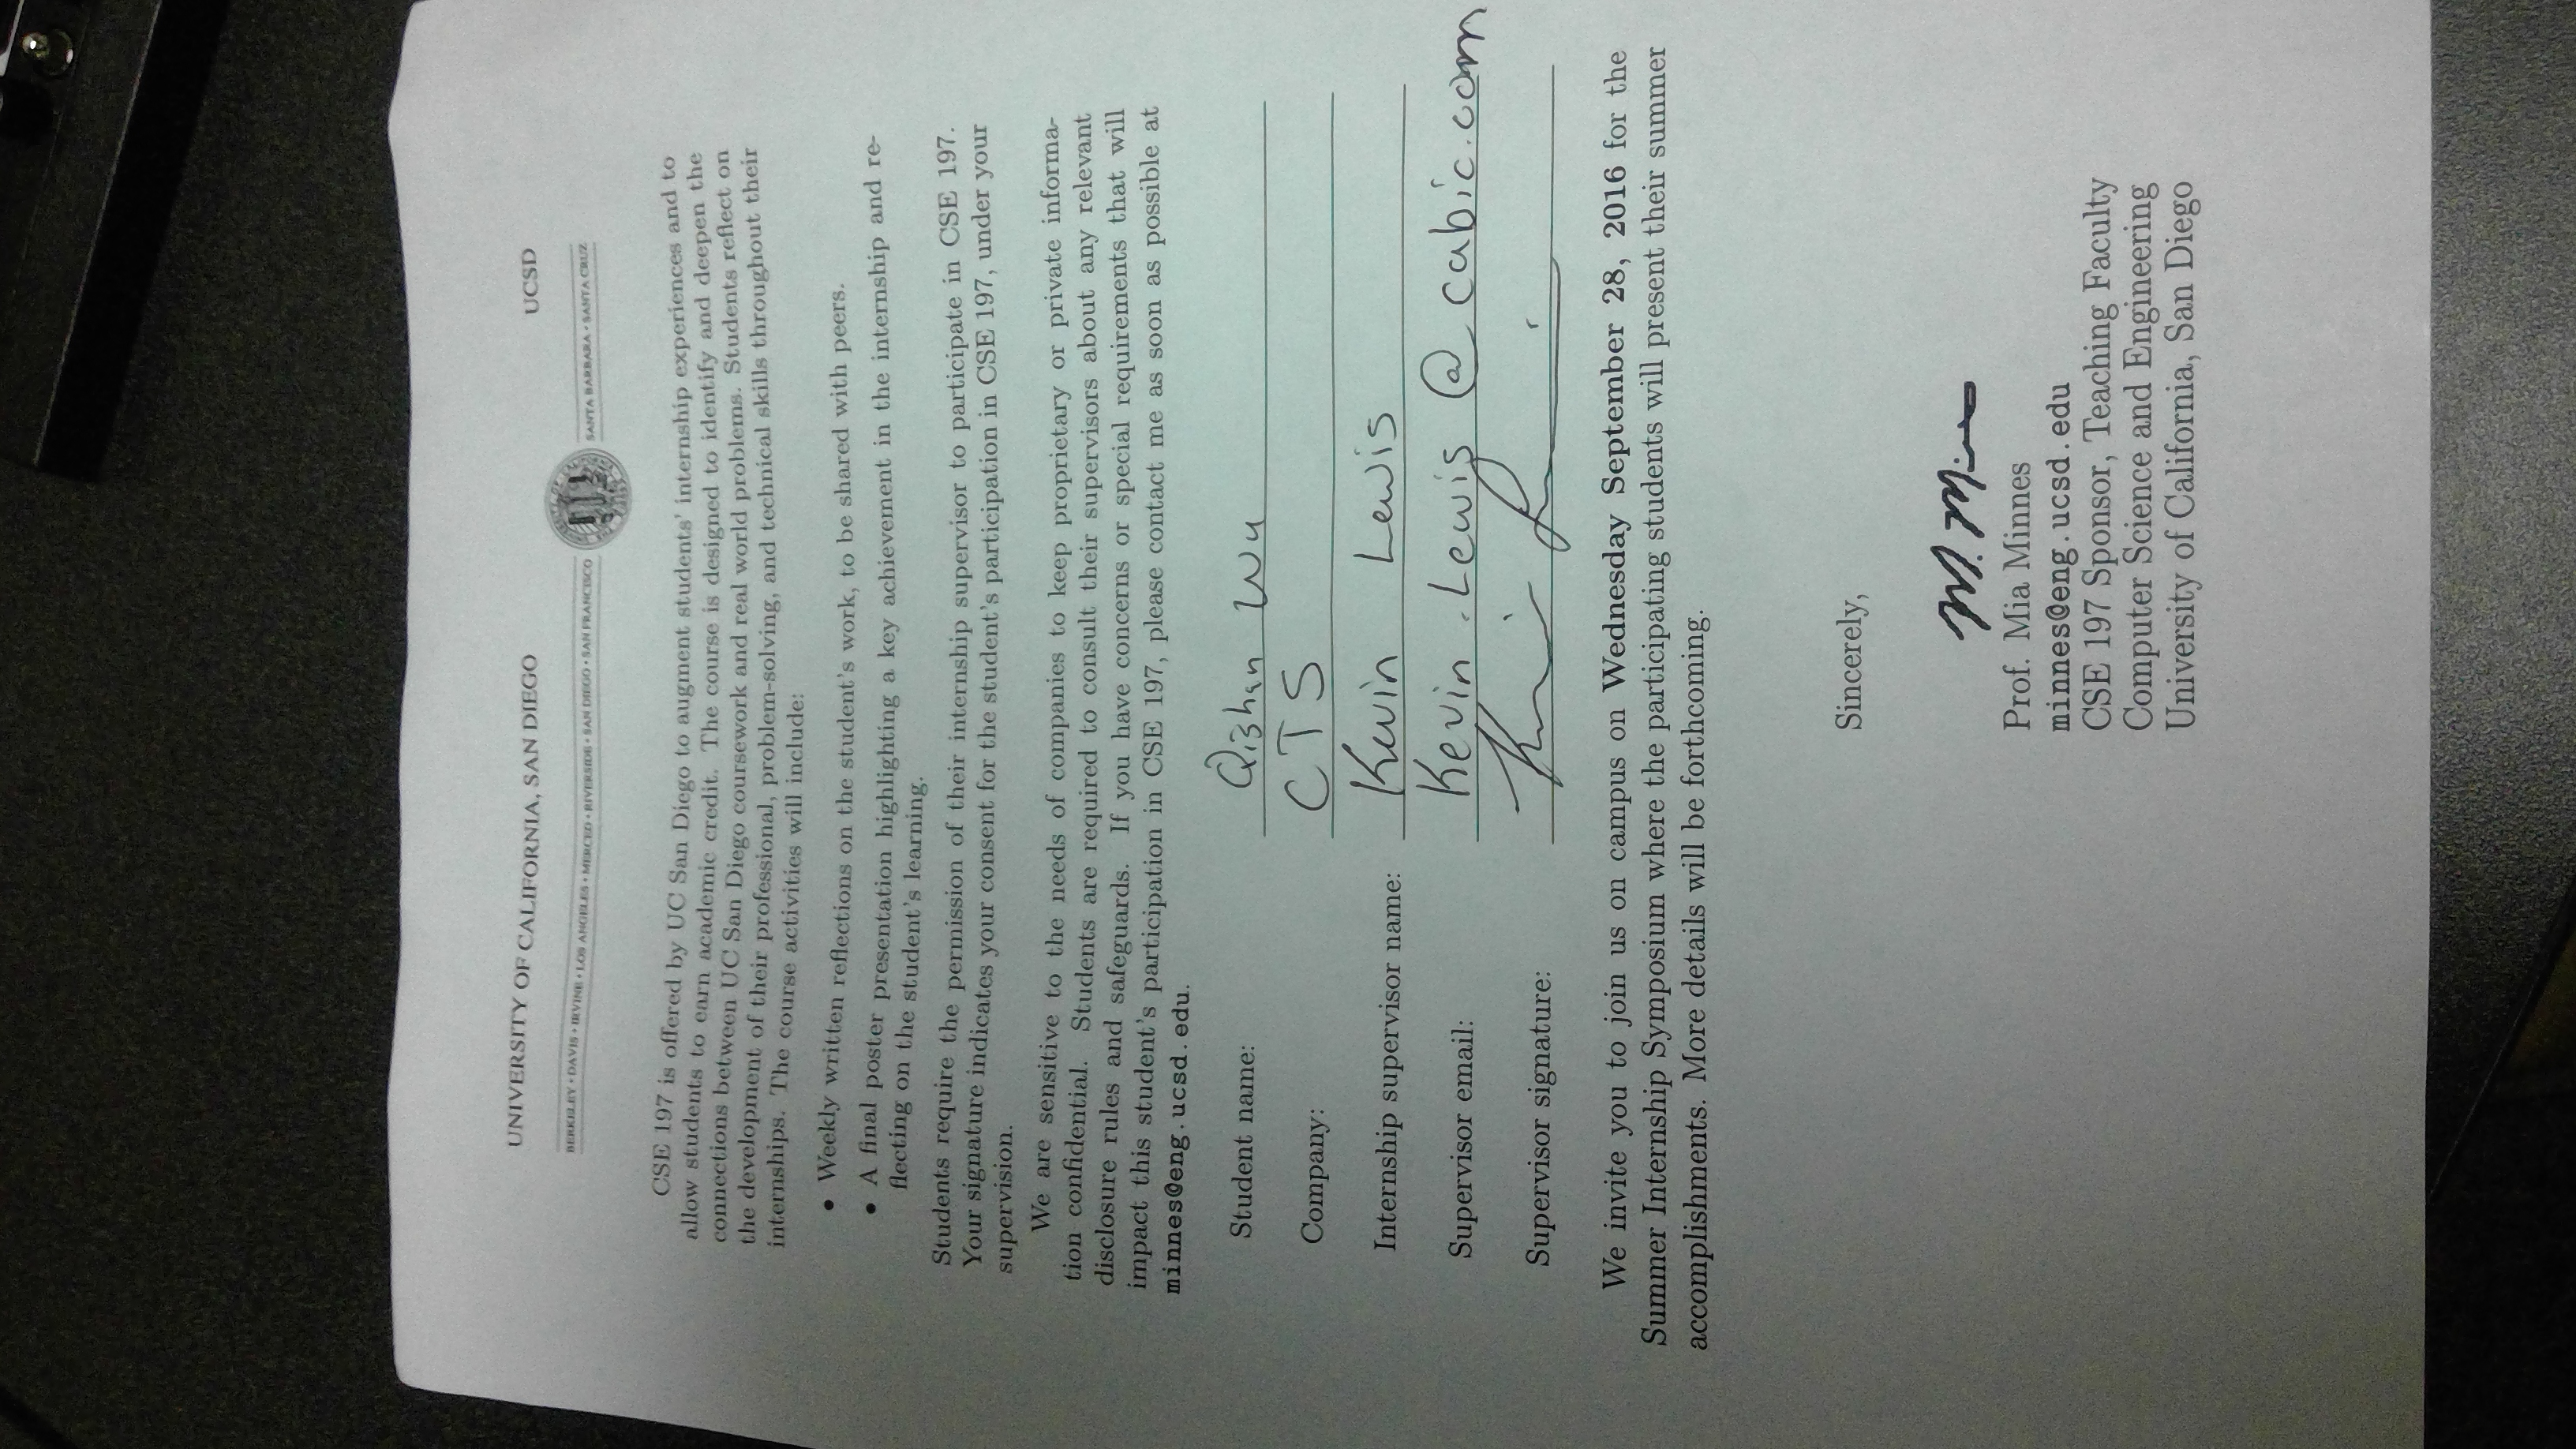 UNIVERSITY OF CALIFORNIA, SAN DIEGO UCSD
BERKELEY • DAVIS • IRVINE • LOS ANGELES • MERCED • RIVERSIDE • SAN DIEGO • SAN FRANCISCO SANTA BARBARA • SANTA CRUZ
CSE 197 is offered by UC San Diego to augment students' internship experiences and to
allow students to earn academic credit. The course is designed to identify and deepen the
connections between UC San Diego coursework and real world problems. Students reflect on
the development of their professional, problem-solving, and technical skills throughout their
internships. The course activities will include:
• Weekly written reflections on the student's work, to be shared with peers.
• A final poster presentation highlighting a key achievement in the internship and re-
flecting on the student's learning.
Students require the permission of their internship supervisor to participate in CSE 197.
Your signature indicates your consent for the student's participation in CSE 197, under your
supervision.
We are sensitive to the needs of companies to keep proprietary or private informa-
tion confidential. Students are required to consult their supervisors about any relevant
disclosure rules and safeguards. If you have concerns or special requirements that will
impact this student's participation in CSE 197, please contact me as soon as possible at
minnes@eng.ucsd.edu.
Student name: Qishan Wu
Company: CTS
Internship supervisor name: Kevin Lewis
Supervisor email: Kevin.Lewis@cubic.com
Supervisor signature:
We invite you to join us on campus on Wednesday September 28, 2016 for the
Summer Internship Symposium where the participating students will present their summer
accomplishments. More details will be forthcoming.
Sincerely,
M. Minnes
Prof. Mia Minnes
minnes@eng.ucsd.edu
CSE 197 Sponsor, Teaching Faculty
Computer Science and Engineering
University of California, San Diego